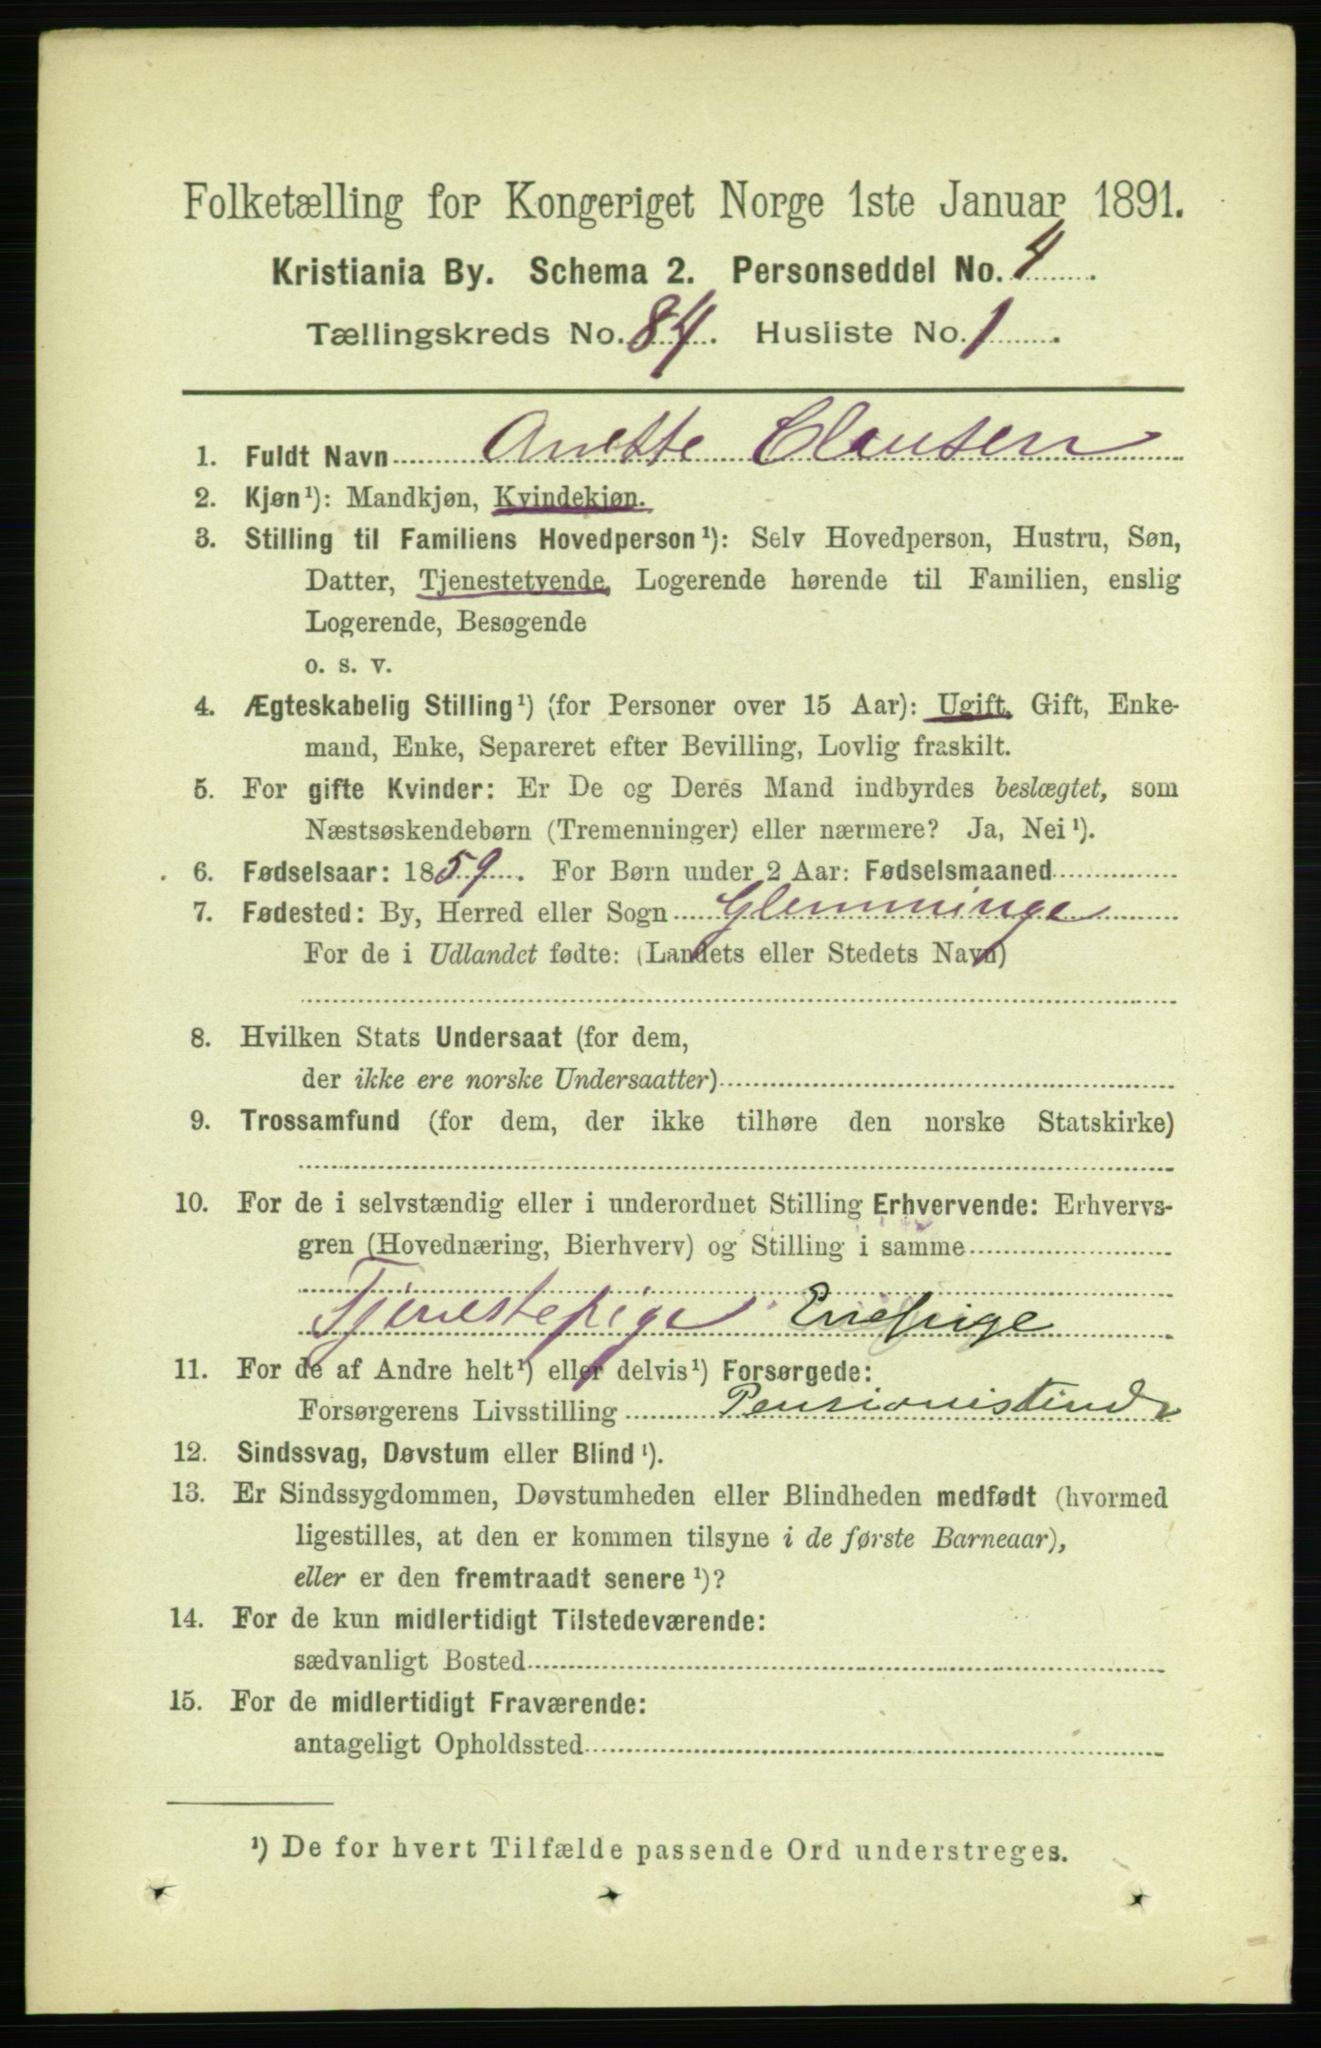 Folketælling for Kongeriget Norge 1ste Januar 1891.
Kristiania By. Schema 2. Personseddel No. 4
Tællingskreds No. 84. Husliste No. 1.
1. Fuldt Navn Anette Clausen
2. Kjøn¹): Mandkjøn, Kvindekjøn.
3. Stilling til Familiens Hovedperson¹): Selv Hovedperson, Hustru, Søn,
Datter, Tjenestetyende, Logerende hørende til Familien, enslig
Logerende, Besøgende
o. s. v.
4. Ægteskabelig Stilling¹) (for Personer over 15 Aar): Ugift, Gift, Enke-
mand, Enke, Separeret efter Bevilling, Lovlig fraskilt.
5. For gifte Kvinder: Er De og Deres Mand indbyrdes beslægtet, som
Næstsøskendebørn (Tremenninger) eller nærmere? Ja, Nei¹).
6. Fødselsaar: 1859. For Børn under 2 Aar: Fødselsmaaned
7. Fødested: By, Herred eller Sogn Glemminge
For de i Udlandet fødte: (Landets eller Stedets Navn)
8. Hvilken Stats Undersaat (for dem,
der ikke ere norske Undersaatter)
9. Trossamfund (for dem, der ikke tilhøre den norske Statskirke)
10. For de i selvstændig eller i underordnet Stilling Erhvervende: Erhvervs-
gren (Hovednæring, Bierhverv) og Stilling i samme
Tjenestepige Enepige
11. For de af Andre helt¹) eller delvis¹) Forsørgede:
Forsørgerens Livsstilling Pensionistinde
12. Sindssvag, Døvstum eller Blind¹).
13. Er Sindssygdommen, Døvstumheden eller Blindheden medfødt (hvormed
ligestilles, at den er kommen tilsyne i de første Barneaar),
eller er den fremtraadt senere¹)?
14. For de kun midlertidigt Tilstedeværende:
sædvanligt Bosted
15. For de midlertidigt Fraværende:
antageligt Opholdssted
¹) De for hvert Tilfælde passende Ord understreges.